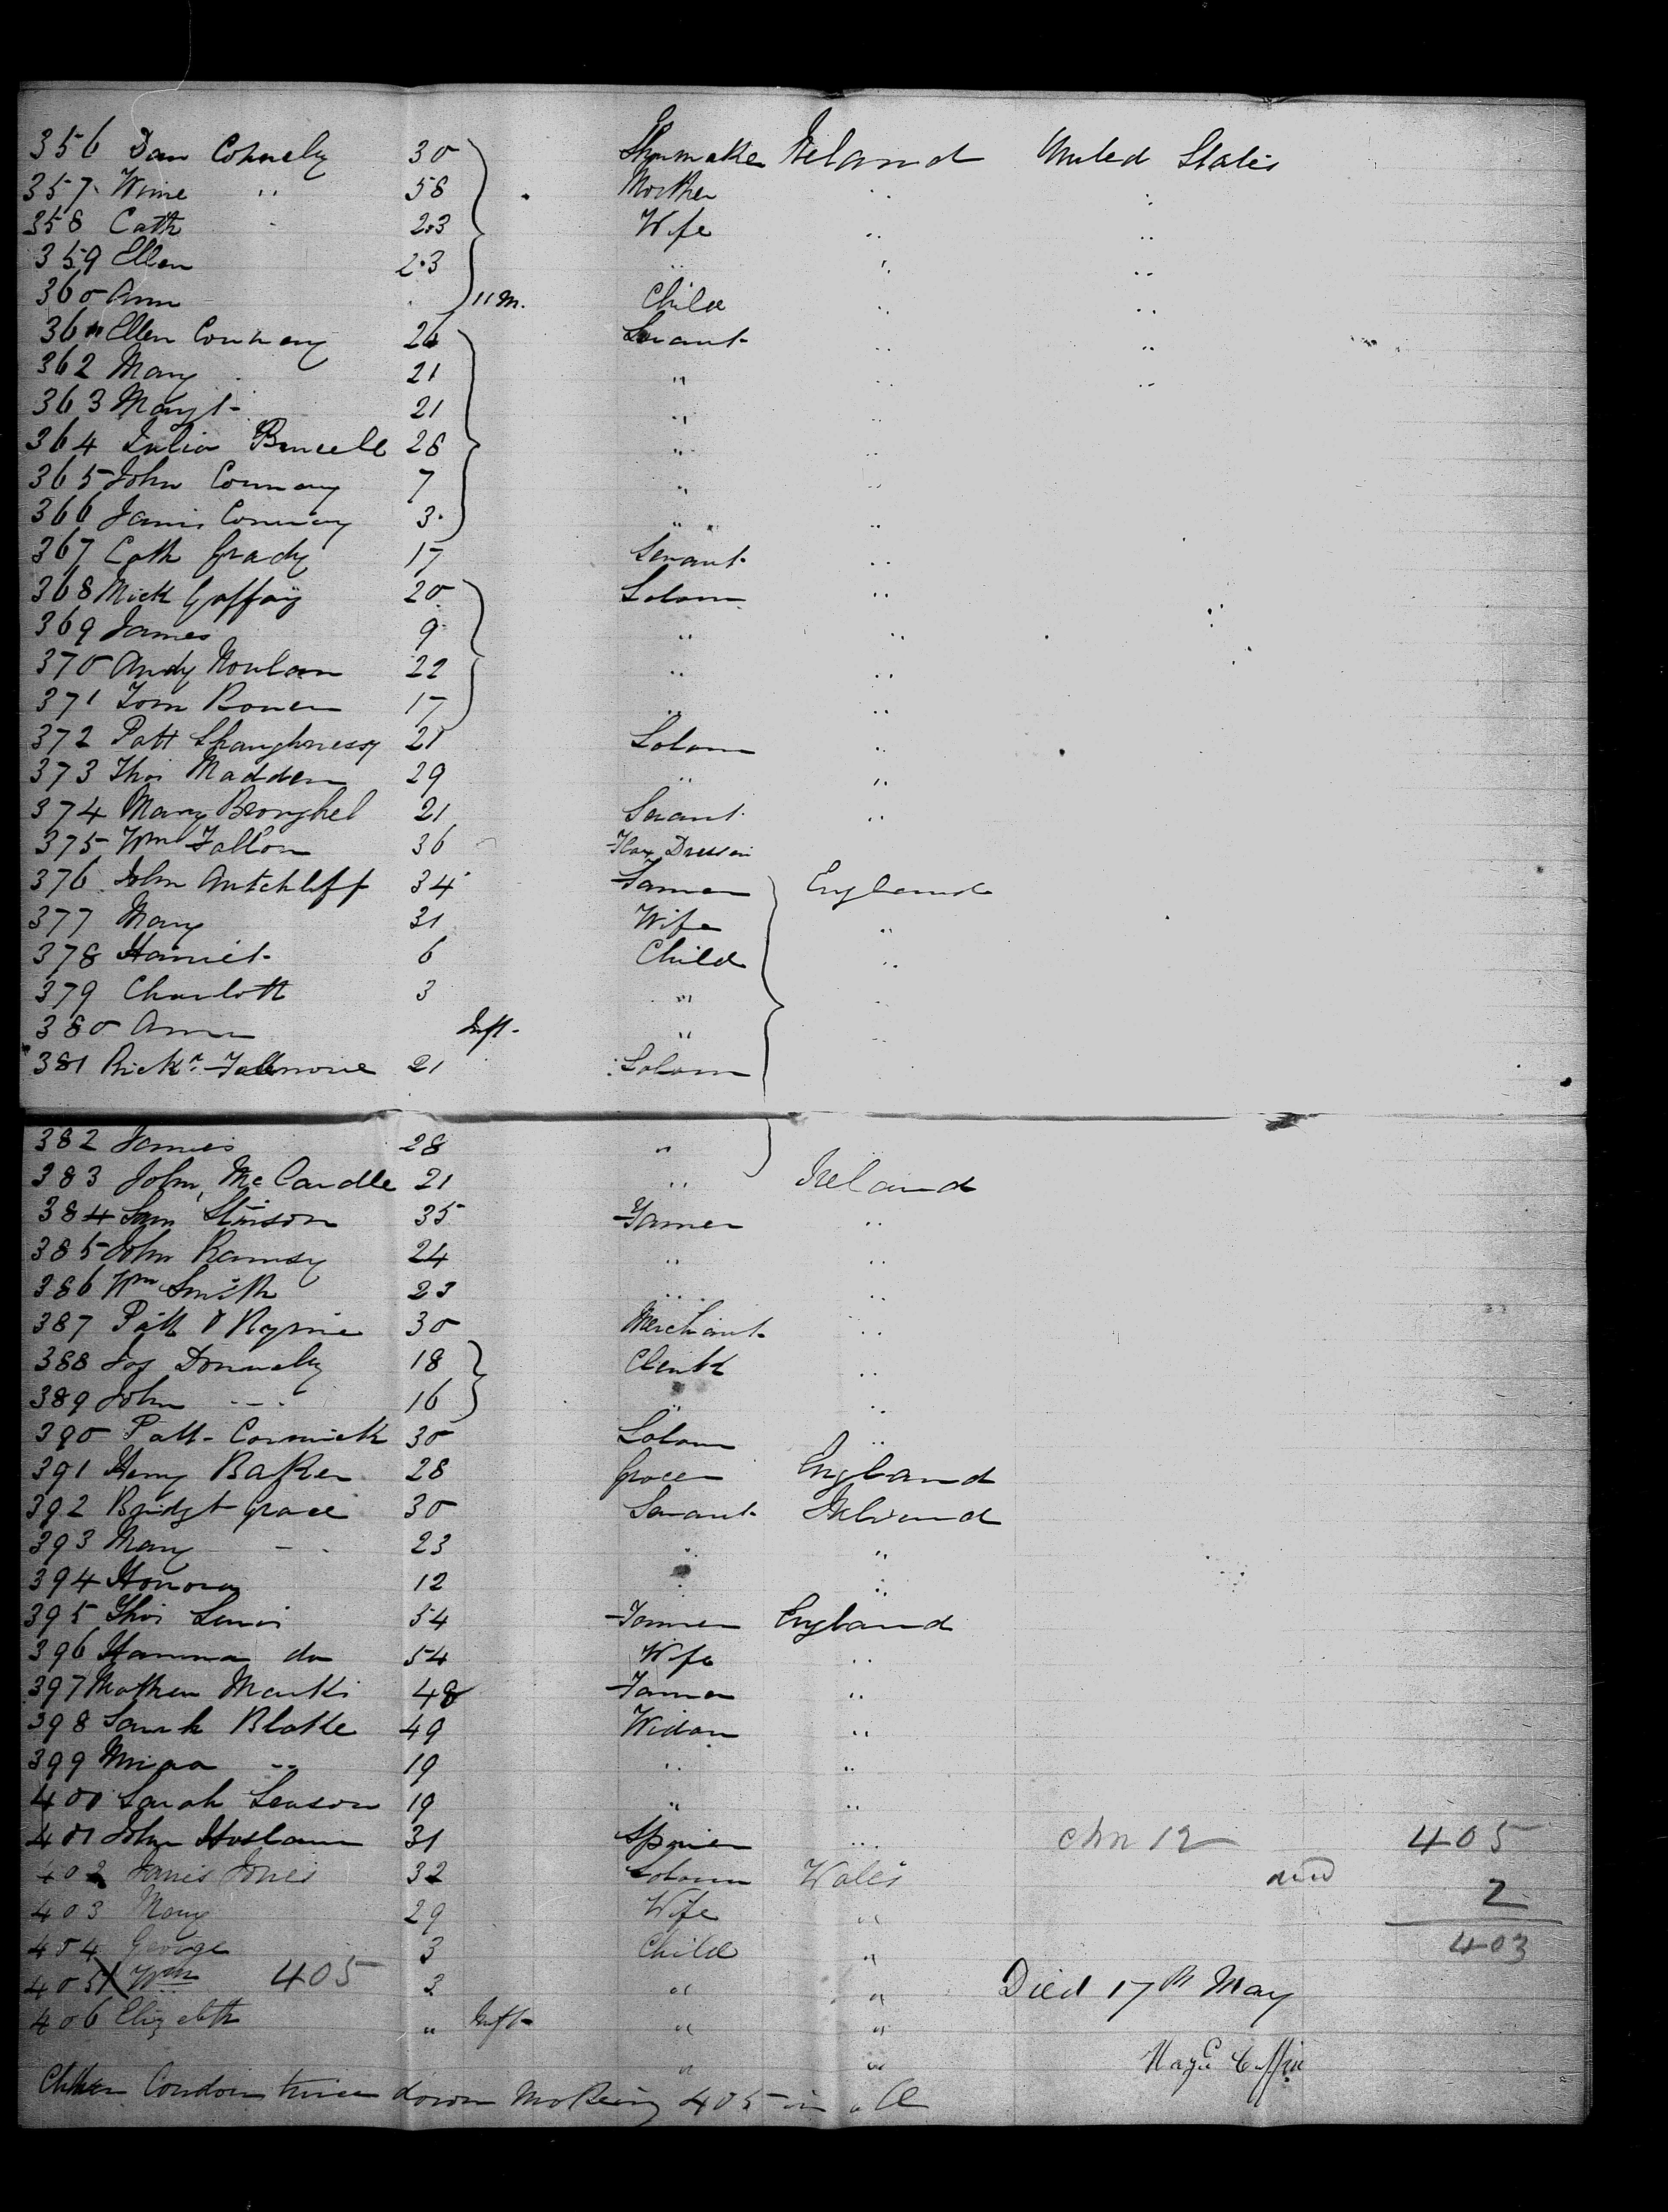 356 Dan Connely 30 Shoemaker Ireland United States
357 Wine " 58 Mother " "
358 Cath 23 Wife " "
359 Ellen 23 " " "
360 Ann 11 m. Child " "
361 Ellen Conway 26 Servant " "
362 Mary 21 " " "
363 Margt 21 " "
364 Julia Purcell 28 " "
365 John Conway 7 " "
366 James Conway 3 " "
367 Cath Grady 17 Servant "
368 Mick Gaffay 20 Laborer " "
369 James 9 " "
370 Andy Noulan 22 " "
371 Tom Bowen 17 " "
372 Patt Shaughnessy 21 Laborer "
373 Thos Madden 29 " "
374 Mary 21 Servant "
375 Wm Fallon 36 Flax Dresser
376 John Antchliff 34 Farmer England
377 Mary 31 Wife "
378 Harriet 6 Child "
379 Charlott 3 " "
380 Ann Inft. " "
381 Rickd 21 Laborer
382 James 28 "
383 John McCardle 21 " Ireland
384 Sam Stinson 35 Farmer "
385 John Ramsey 24 " "
386 Wm Smith 23 " "
387 Patt 30 Merchant "
388 Jos Donnelly 18 Clerk "
389 John -- 16 " "
390 Patt Cormick 30 Laborer "
391 Henry Baker 28 Grocer England
392 Bridgt Grace 30 Servant Ireland
393 Mary - 23 " "
394 Honora 12 " "
395 Thos Lewis 54 Farmer England
396 Hanna do 54 Wife "
397 Mathew Marks 48 Farmer "
398 Sarah Blake 49 Widow "
399 -- 19 " "
400 Sarah Leason 19 " "
401 John Haslam 31 " 12 405
402 James Jones 32 Laborer Wales died 2
403 Mary 29 Wife " 403
404 George 3 Child "
405 X Wm 405 2 " " Died 17th May
406 Elizabeth " Inft " "
" " Coffin
Condon twice down Making 405 in all